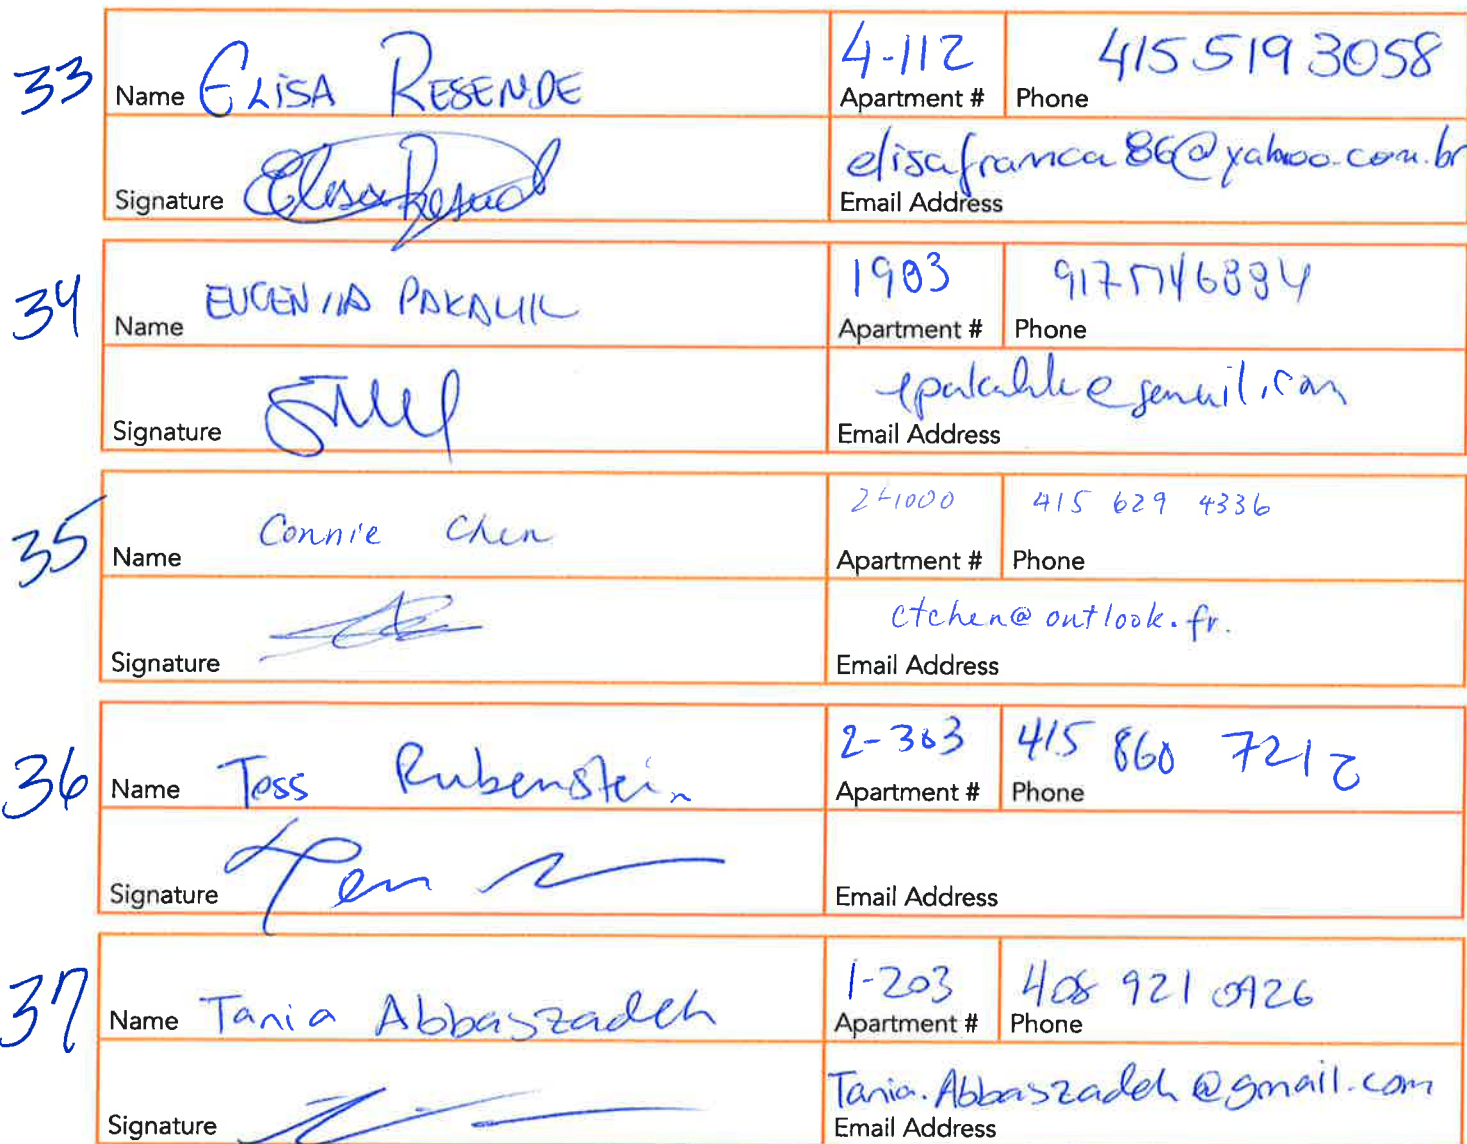 33 Name ELISA RESENDE 4-112 Apartment # 415 519 3058 Phone
Signature Elisa Resend elisafranca86@yahoo.com.br Email Address
34 Name EUGENIIA PAKALIK 1903 Apartment # Phone
Signature Email Address
35 Name Connie Chen 2-1000 Apartment # 415 629 4336 Phone
Signature ctchen@outlook.fr. Email Address
36 Name Tess Rubenstein 2-303 Apartment # 415 860 7212 Phone
Signature Email Address
37 Name Tania Abbaszadeh 1-203 Apartment # 408 921 0926 Phone
Signature Tania.Abbaszadeh@gmail.com Email Address